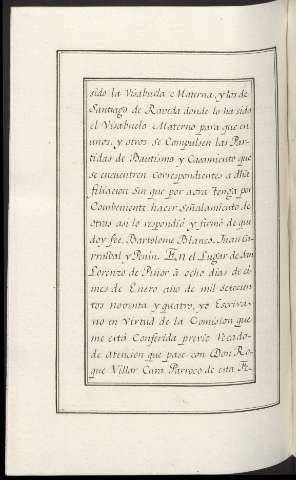 sido la Visabuela Materna, y los de
Santiago de Raveda donde lo ha sido
el Visabuelo Materno para que en
unos, y otros se Compulsen las Par-
tidas de Bautismo y Casamiento que
se encuentren correspondientes a dha
filiacion sin que por aora tenga por
Combeniente hacer Señalamiento de
otras asi lo respondió y firmó de que
doy fee. Bartolome Blanco. Juan Ca-
rralbal y Penin. En el Lugar de San
Lorenzo de Piñor á ocho dias de el
mes de Enero año de mil setecien
tos noventa y quatro, yo Escriva-
no en Virtud de la Comision que
me está Conferida previo recado
de atencion que pase con Don Ro-
que Villar Cura Parroco de esta Fe-